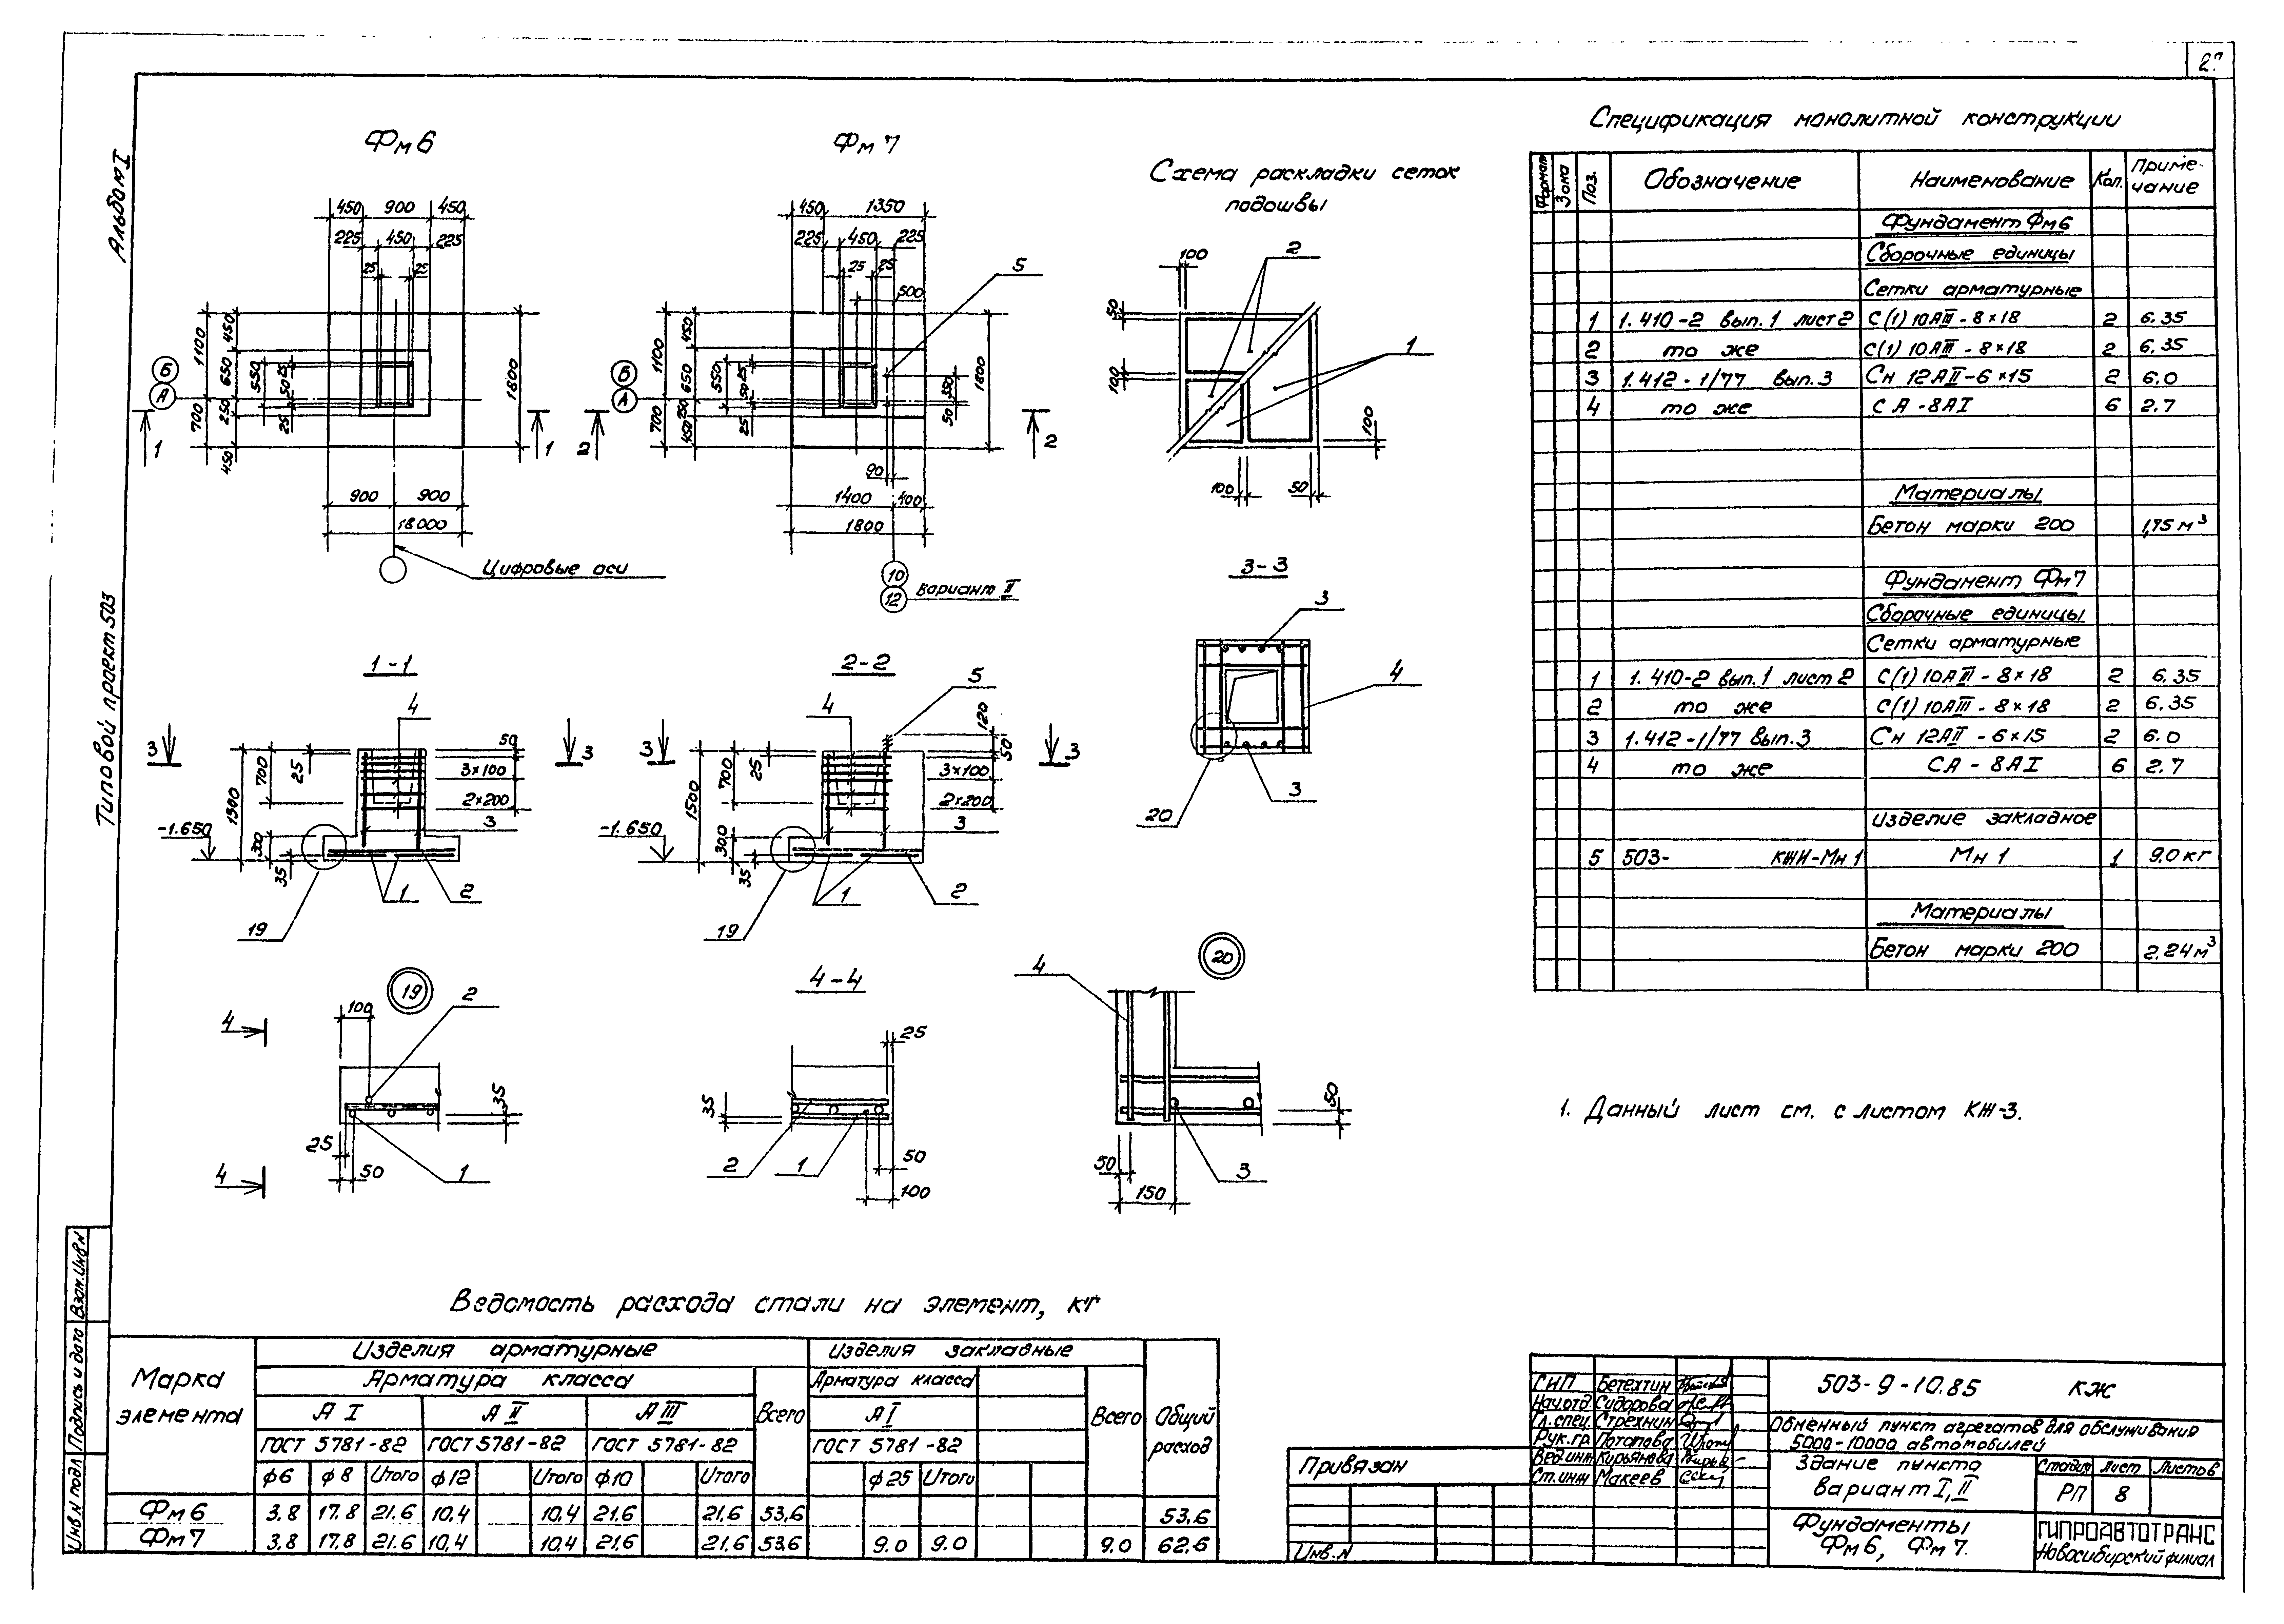 Альбом I
Типовой проект 503
Инв.N подл
Подпись и дата
Взам.Инв.N
Фм 6
450 900 450
225 450 225
25 25
1100 450
650 550 25
50
250 25
700 450
1800
Б
А
1 1
900 900
18000
Цифровые оси
Фм 7
450 1350
225 450 225
25 25
500
5
1100 450
650 550 25
50
250 25
700 450
350
50
1800
Б
А
2 2
90
1400 400
1800
10
12
Вариант II
Схема раскладки сеток
подошвы
100 2
50
1
100
100
100 50
1-1
4
3 3
50
25
700
3×100
2×200
1500
3
-1.650
300
35
1 2
19
2-2
5
4
120
50
3 3
25
700
3×100
2×200
1500
3
-1.650
300
35
1 2
19
3-3
3
4
3
20
19
2
100
4
35
25
50
1
4
4-4
25
35
2 1
50
100
20
4
50
50
150
3
Спецификация монолитной конструкции
Формат Зона Поз. Обозначение Наименование Кол. Приме-
чание
Фундамент Фм6
Сборочные единицы
Сетки арматурные
1 1.410-2 вып.1 лист 2 С(1) 10АIII-8×18 2 6.35
2 то же С(1) 10АIII-8×18 2 6.35
3 1.412-1/77 вып.3 Сн 12АII-6×15 2 6.0
4 то же СА-8АI 6 2.7
Материалы
Бетон марки 200 1,75 м³
Фундамент Фм7
Сборочные единицы
Сетки арматурные
1 1.410-2 вып.1 лист 2 С(1) 10АIII-8×18 2 6.35
2 то же С(1) 10АIII-8×18 2 6.35
3 1.412-1/77 вып.3 Сн 12АII-6×15 2 6.0
4 то же СА-8АI 6 2.7
Изделие закладное
5 503- КЖИ-Мн 1 Мн 1 1 9.0 кг
Материалы
Бетон марки 200 2.24 м³
1. Данный лист см. с листом КЖ-3.
Ведомость расхода стали на элемент, кг
Марка
элемента
Изделия арматурные Изделия закладные
Арматура класса Всего Арматура класса Всего Общий
расход
А I А II А III А I
ГОСТ 5781-82 ГОСТ 5781-82 ГОСТ 5781-82 ГОСТ 5781-82
ф6 ф8 Итого ф12 Итого ф10 Итого ф25 Итого
Фм 6 3.8 17.8 21.6 10.4 10.4 21.6 21.6 53.6 53.6
Фм 7 3.8 17.8 21.6 10.4 10.4 21.6 21.6 53.6 9.0 9.0 9.0 62.6
Привязан
Инв.N
ГИП Бетехтин
Нач.отд. Сидорова
Гл.спец. Стрехнин
Рук.гр. Потапова
Вед.инж Кирьянова
Ст.инж Макеев
503-9-10.85 КЖ
Обменный пункт агрегатов для обслуживания
5000-10000 автомобилей
Здание пункта
вариант I, II
Стадия Лист Листов
РП 8
Фундаменты
Фм 6, Фм 7.
ГИПРОАВТОТРАНС
Новосибирский филиал